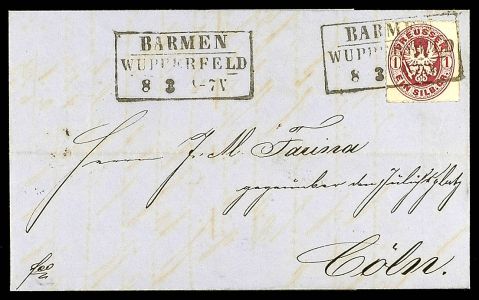 BARMEN
WUPPERFELD
8 3 -7V
BARMEN
WUPP
8 3
PREUSSEN
1 1
EIN SILB. GR.
Herrn J. M. Farina
gegenüber dem Jülichsplatz
Cöln.